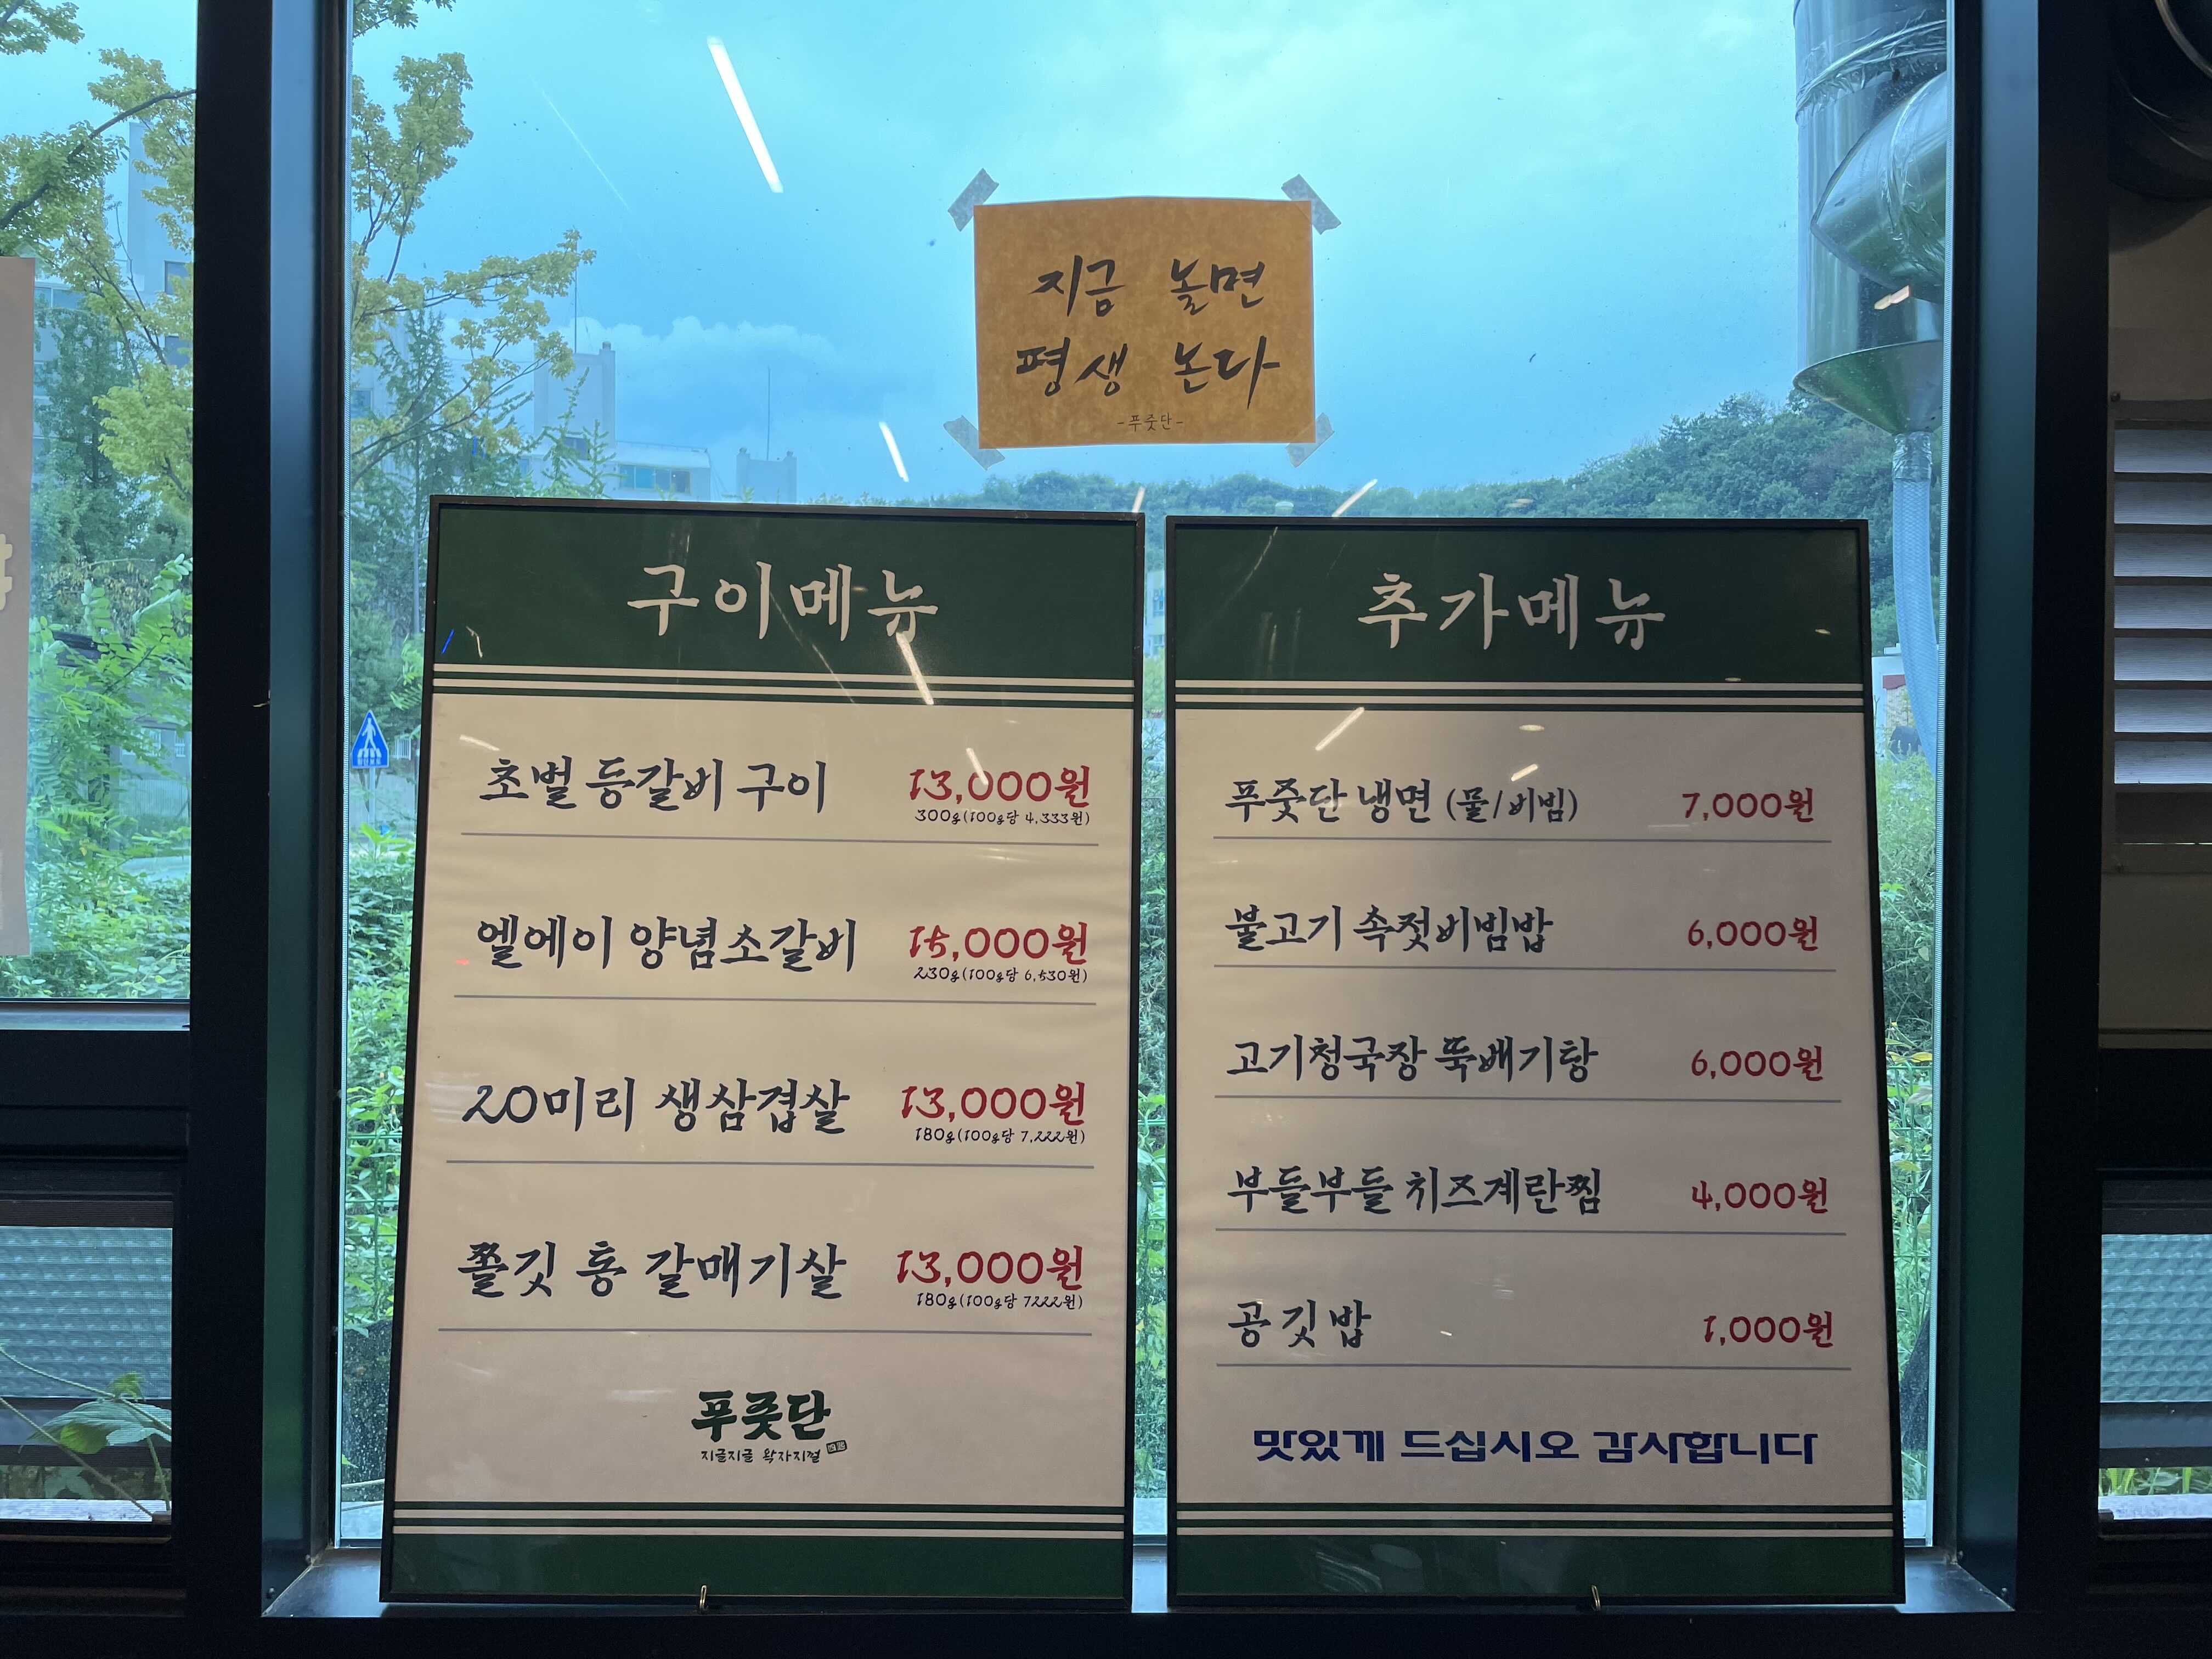 지금 놀면
평생 논다
-푸줏단-
구이메뉴
초벌 등갈비 구이 13,000원
300g(100g당 4,333원)
엘에이 양념소갈비 15,000원
230g(100g당 6,530원)
20미리 생삼겹살 13,000원
180g(100g당 7,222원)
쫄깃 통 갈매기살 13,000원
180g(100g당 7222원)
푸줏단
지글지글 왁자지껄
추가메뉴
푸줏단 냉면 (물/비빔) 7,000원
불고기 속젓비빔밥 6,000원
고기청국장 뚝배기탕 6,000원
부들부들 치즈계란찜 4,000원
공깃밥 1,000원
맛있게 드십시오 감사합니다